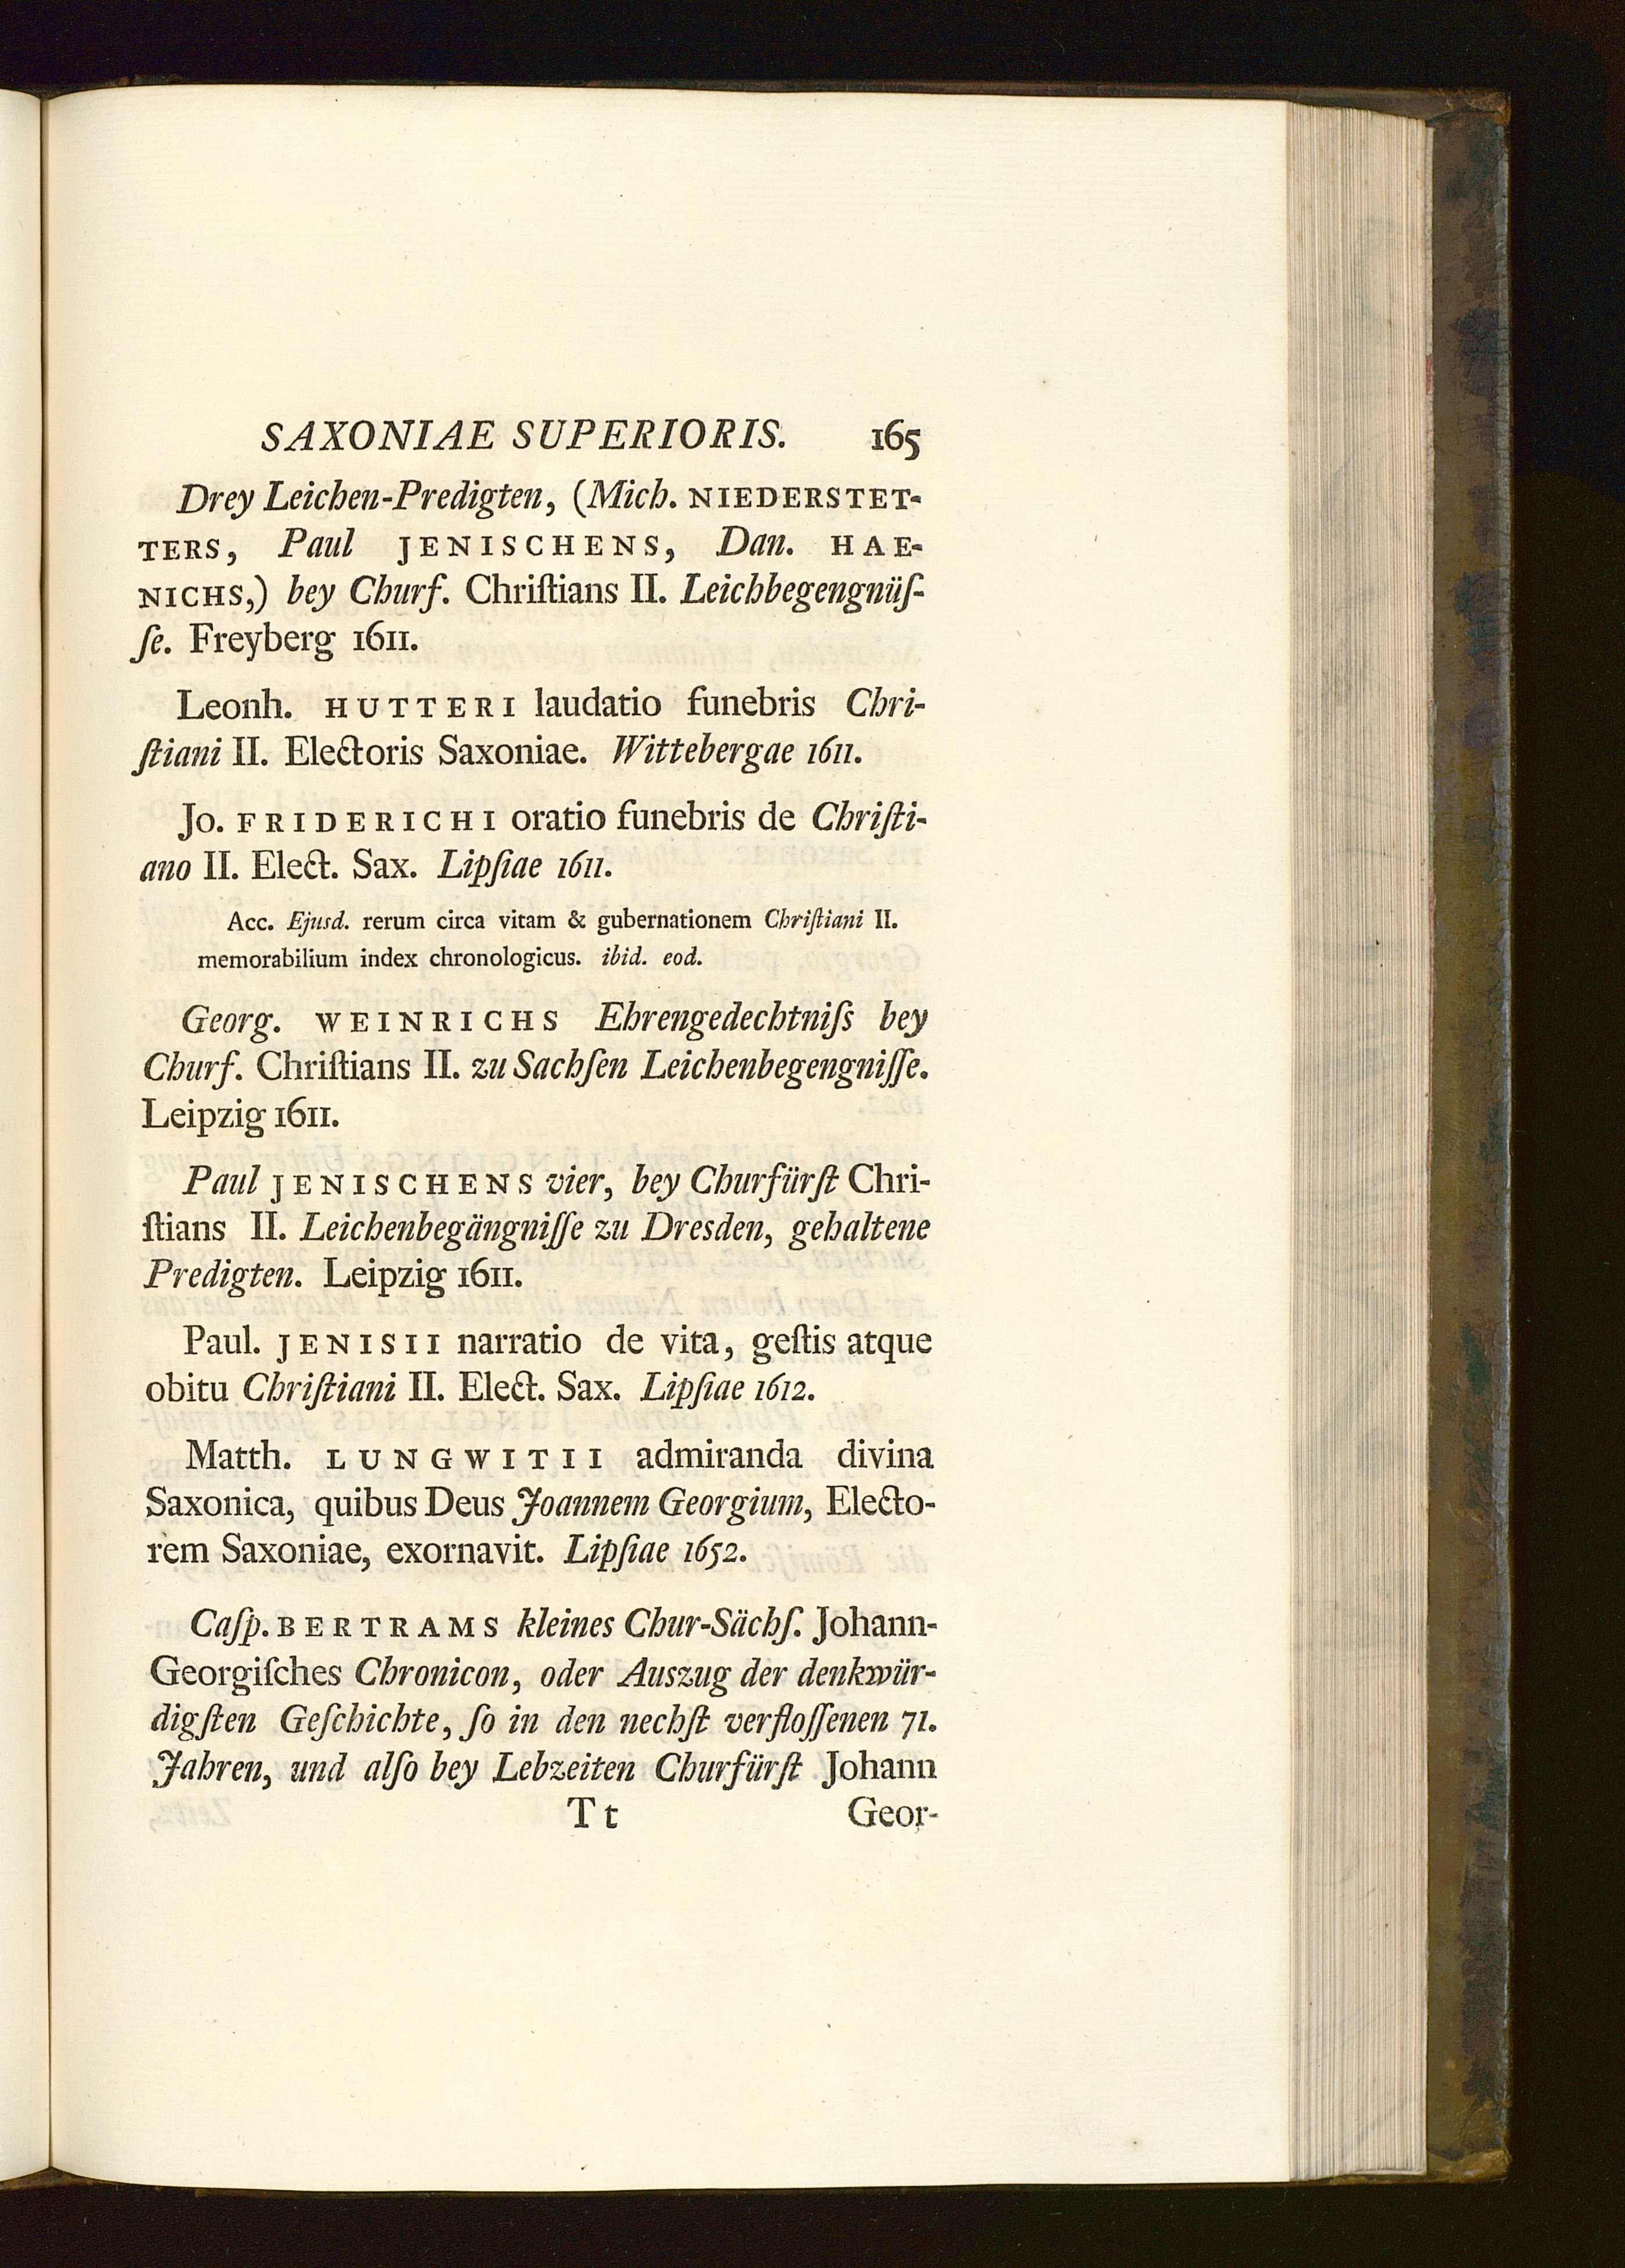 SAXONIAE SUPERIORIS. 165
Drey Leichen-Predigten, (Mich. NIEDERSTET-
TERS, Paul JENISCHENS, Dan. HAE-
NICHS,) bey Churf. Chriſtians II. Leichbegengnüſ-
ſe. Freyberg 1611.
Leonh. HUTTERI laudatio funebris Chri-
ſtiani II. Electoris Saxoniae. Wittebergae 1611.
Jo. FRIDERICHI oratio funebris de Chriſti-
ano II. Elect. Sax. Lipſiae 1611.
Acc. Ejusd. rerum circa vitam & gubernationem Chriſtiani II.
memorabilium index chronologicus. ibid. eod.
Georg. WEINRICHS Ehrengedechtniſs bey
Churf. Chriſtians II. zu Sachſen Leichenbegengniſſe.
Leipzig 1611.
Paul JENISCHENS vier, bey Churfürſt Chri-
ſtians II. Leichenbegängniſſe zu Dresden, gehaltene
Predigten. Leipzig 1611.
Paul. JENISII narratio de vita, geſtis atque
obitu Chriſtiani II. Elect. Sax. Lipſiae 1612.
Matth. LUNGWITII admiranda divina
Saxonica, quibus Deus Joannem Georgium, Electo-
rem Saxoniae, exornavit. Lipſiae 1652.
Caſp. BERTRAMS kleines Chur-Sächſ. Johann-
Georgiſches Chronicon, oder Auszug der denkwür-
digſten Geſchichte, ſo in den nechſt verfloſſenen 71.
Jahren, und alſo bey Lebzeiten Churfürſt Johann
Tt Geor-